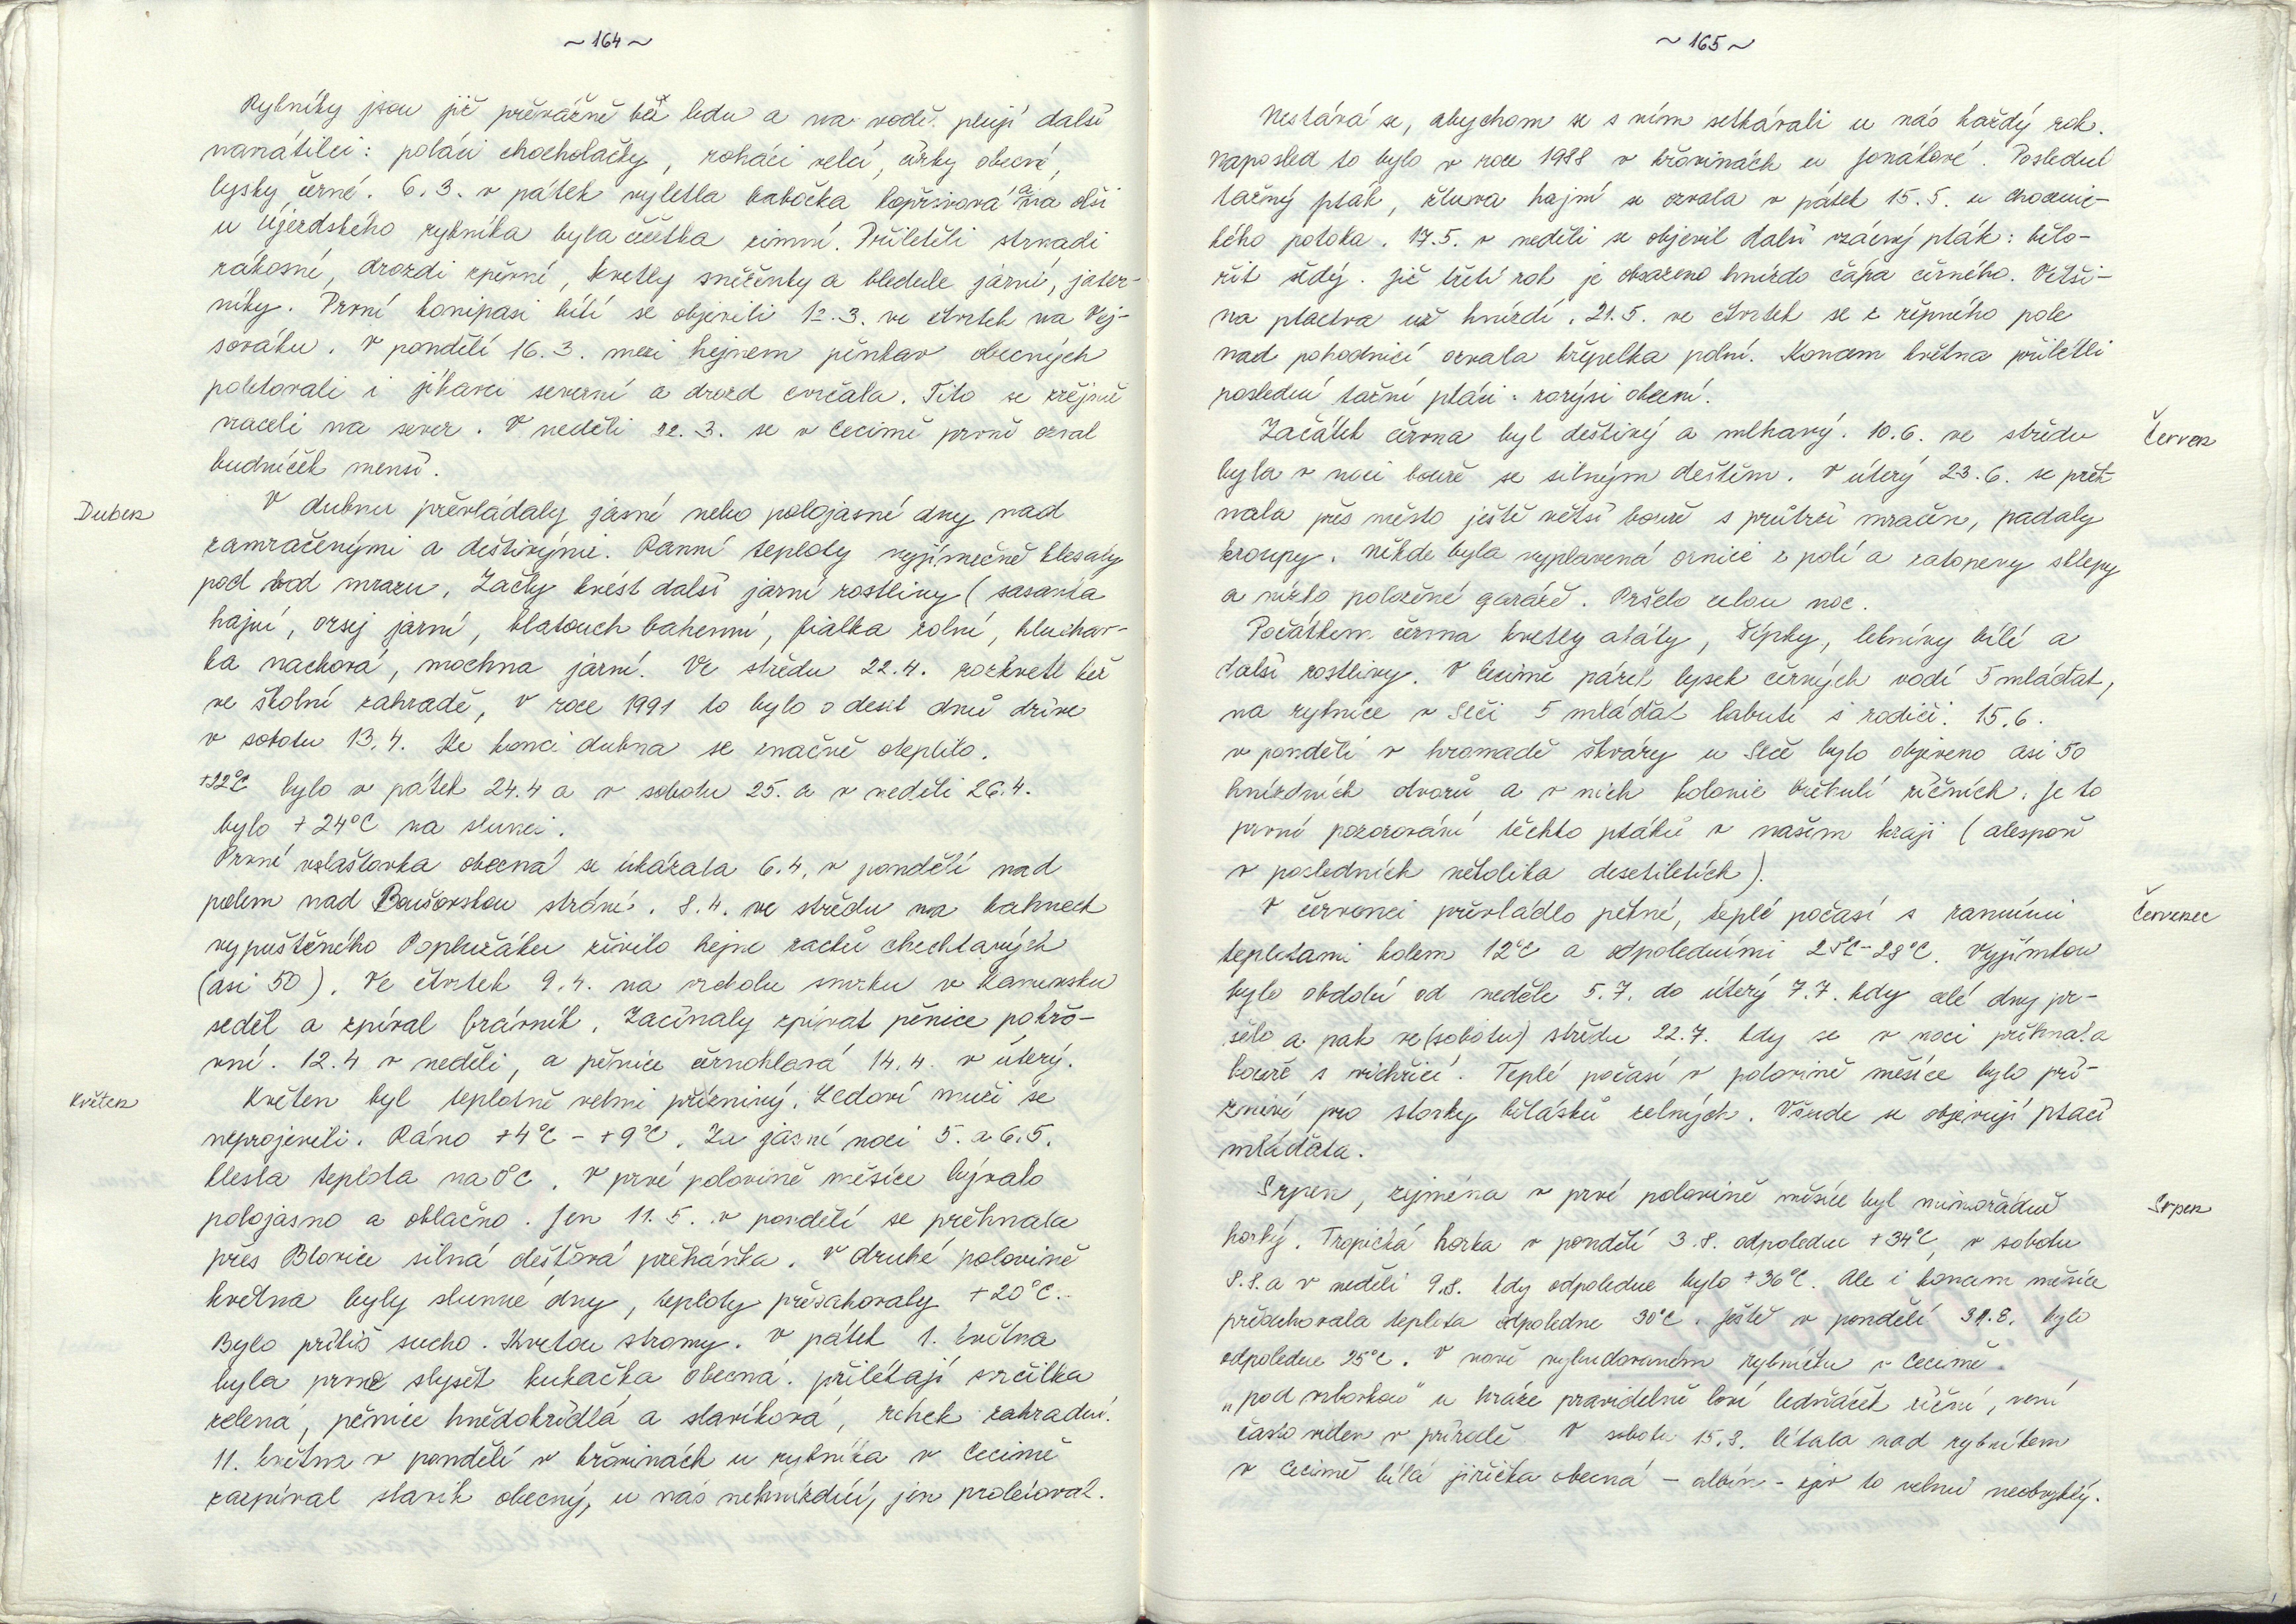 ~ 164 ~
Rybníky jsou již převážně bez ledu a na vodě plují další
navrátilci: poláci chocholačky, roháci velcí, čírky obecné,
lysky černé. 6.3. v pátek vyletla babočka kopřivová a na olši
u Újezdského rybníka byla čečetka zimní. Přiletěli strnadi
rákosní, drozdi zpěvní, kvetly sněženky a bledule jarní, jater-
níky. První konipasi bílí se objevili 12.3. ve čtvrtek na Vej-
sováku. V pondělí 16.3. mezi hejnem pěnkav obecných
poletovali i jíkavci severní a drozd cvrčala. Tito se zřejmě
vraceli na sever. V neděli 22.3. se v Cecimě prvně ozval
budníček menší.
Duben
V dubnu převládaly jasné nebo polojasné dny nad
zamračenými a deštivými. Ranní teploty vyjímečně klesaly
pod bod mrazu. Začly kvést další jarní rostliny (sasanka
hajní, orsej jarní, blatouch bahenní, fialka rolní, hluchav-
ka nachová, mochna jarní. Ve středu 22.4. rozkvetl keř
ve školní zahradě, v roce 1991 to bylo o deset dnů dříve
v sobotu 13.4. Ke konci dubna se značně oteplilo.
+22°C bylo v pátek 24.4 a v sobotu 25. a v neděli 26.4.
bylo + 24°C na slunci.
První vlaštovka obecná se ukázala 6.4. v pondělí nad
polem nad Boušovskou strání. 8.4. ve středu na bahnech
vypuštěného Poplužáku živilo hejno racků chechtavých
(asi 50). Ve čtvrtek 9.4. na vrcholu smrku v Kamensku
seděl a zpíval brávník. Začínaly zpívat pěnice pokřo-
vní. 12.4 v neděli, a pěnice černohlavá 14.4. v úterý.
Květen
Květen byl teplotně velmi příznivý. Ledoví muži se
neprojevili. Ráno +4°C - +9°C. Za jasné noci 5. a 6.5.
klesla teplota na 0°C. V prvé polovině měsíce bývalo
polojasno a oblačno. Jen 11.5. v pondělí se přehnala
přes Blovice silná dešťová přeháňka. V druhé polovině
května byly slunné dny, teploty přesahovaly +20°C.
Bylo příliš sucho. Kvetou stromy. V pátek 1. května
byla prvně slyšet kukačka obecná. přilétají svrčilka
zelená, pěnice hnědokřídlá a slavíková, rehek zahradní.
11. května v pondělí v křovinách u rybníka v Cecimě
zazpíval slavík obecný, u nás nehnízdící, jen proletoval.
~ 165 ~
Nestává se, abychom se s ním setkávali u nás každý rok.
Naposled to bylo v roce 1988 v křovinách u Jonákové. Poslední
tažný pták, žluva hajní se ozvala v pátek 15.5. u chocenic-
kého potoka. 17.5. v neděli se objevil další vzácný pták: bělo-
řit šedý. Již třetí rok je obsazeno hnízdo čápa černého. Větši-
na ptactva už hnízdí. 21.5. ve čtvrtek se z řepného pole
nad pohodnicí ozvala křepelka polní. Koncem května přilétli
poslední tažní ptáci: rorýsi obecní.
Červen
Začátek června byl deštivý a mlhavý. 10.6. ve středu
byla v noci bouře se silným deštěm. V úterý 23.6. se přeh
nala přes město ještě větší bouře s průtrží mračen, padaly
kroupy. někde byla vyplavená ornice z polí a zatopeny sklepy
a nízko položené garáže. Pršelo celou noc.
Počátkem června kvetly akáty, šípky, lekníny bílé a
další rostliny. V Cecimě párek lysek černých vodí 5 mláďat,
na rybníce v Seči 5 mláďat labutí s rodiči. 15.6.
v pondělí v hromadě škváry u Seče bylo objeveno asi 50
hnízdních otvorů a v nich kolonie břehulí říčních. Je to
první pozorování těchto ptáků v našem kraji (alespoň
v posledních několika desetiletích).
Červenec
V červenci převládlo pěkné, teplé počasí s ranními
teplotami kolem 12°C a odpoledními 25°C-28°C. Vyjímkou
bylo období od neděle 5.7. do úterý 7.7. kdy celé dny pr-
šelo a pak ve (sobotu) středu 22.7. kdy se v noci přihnala
bouře s vichřicí. Teplé počasí v polovině měsíce bylo pří-
znivé pro stovky bělásků zelných. Všude se objevují ptačí
mláďata.
Srpen
Srpen, zejména v prvé polovině měsíce byl mimořádně
horký. Tropická horka v pondělí 3.8. odpoledne +34°C, v sobotu
8.8. a v neděli 9.8. kdy odpoledne bylo +36°C. Ale i koncem měsíce
přesahovala teplota odpoledne 30°C. Ještě v pondělí 31.8. bylo
odpoledne 25°C. V nově vybudovaném rybníčku v Cecimě
„pod vrbovkou" u hráze pravidelně loví ledňáček říční, není
často viděn v přírodě. V sobotu 15.8. létala nad rybníkem
v Cecimě bílá jiřička obecná - albín - zjev to velmi neobvyklý.